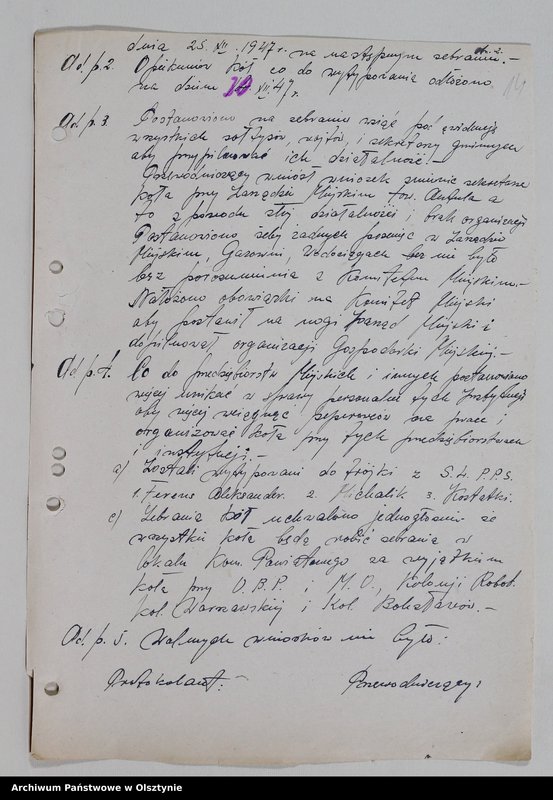 dnia 25. XII. 1947 r. na następnym zebraniu. –
Ad. p. 2. Opiekunów kół co do wytypowania odłożono
na dzień XII 47 r.
14
Ad. p. 3. Postanowiono na zebraniu wziąć pod ewidencję
wszystkich sołtysów, wójtów, i sekretarzy gminnych
aby przypilnować ich działalność –
Przewodniczący wniósł wniosek zmienić sekretarza
koła przy Zarządzie Miejskim tow. a
to z powodu złej działalności i brak organizacji
Postanowiono żeby żadnych posunięć w Zarządzie
Miejskim, Gazowni, Wodociągach nie było
bez porozumienia z Komitetem Miejskim. –
Nałożono obowiązki na Komitet Miejski
aby postawił na nogi Zarząd Miejski i
dopilnował organizacji Gospodarki Miejskiej. –
Ad p. 4. Co do przedsiębiorstw Miejskich i innych postanowiono
więcej wnikać w sprawy personalne tych Instytucji
aby więcej wciągnąć peperowców na prace i
organizować koła przy tych przedsiębiorstwach
i instytucji. –
a) Zostali wytypowani do trójki z S. Ł. P.P.S.
1. Ferenc Aleksander. 2 Michalik 3.
c) Zebrania kół uchwalono jednogłośnie że
wszystkie koła będą robić zebrania w
lokalu Kom. Powiatowego za wyjątkiem
koła przy U.B.P. i M.O., Kolonji Robot.
Kol. Warszawskiej i Kol. –
Ad. p. 5. Wolnych wniosków nie było:
Protokolant: –
Przewodniczący:
Archiwum Państwowe w Olsztynie